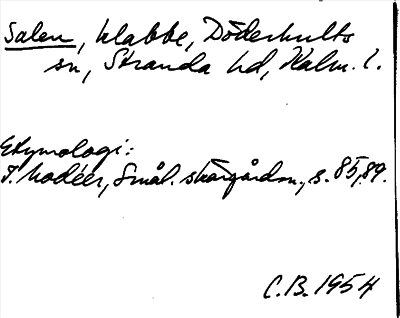 Salen, klabbe, Döderhults
sn, Stranda hd, Kalm. l.
Etymologi:
I. Modéer, Smål. skärgårdsn., s. 85, 89.
C.B. 1954